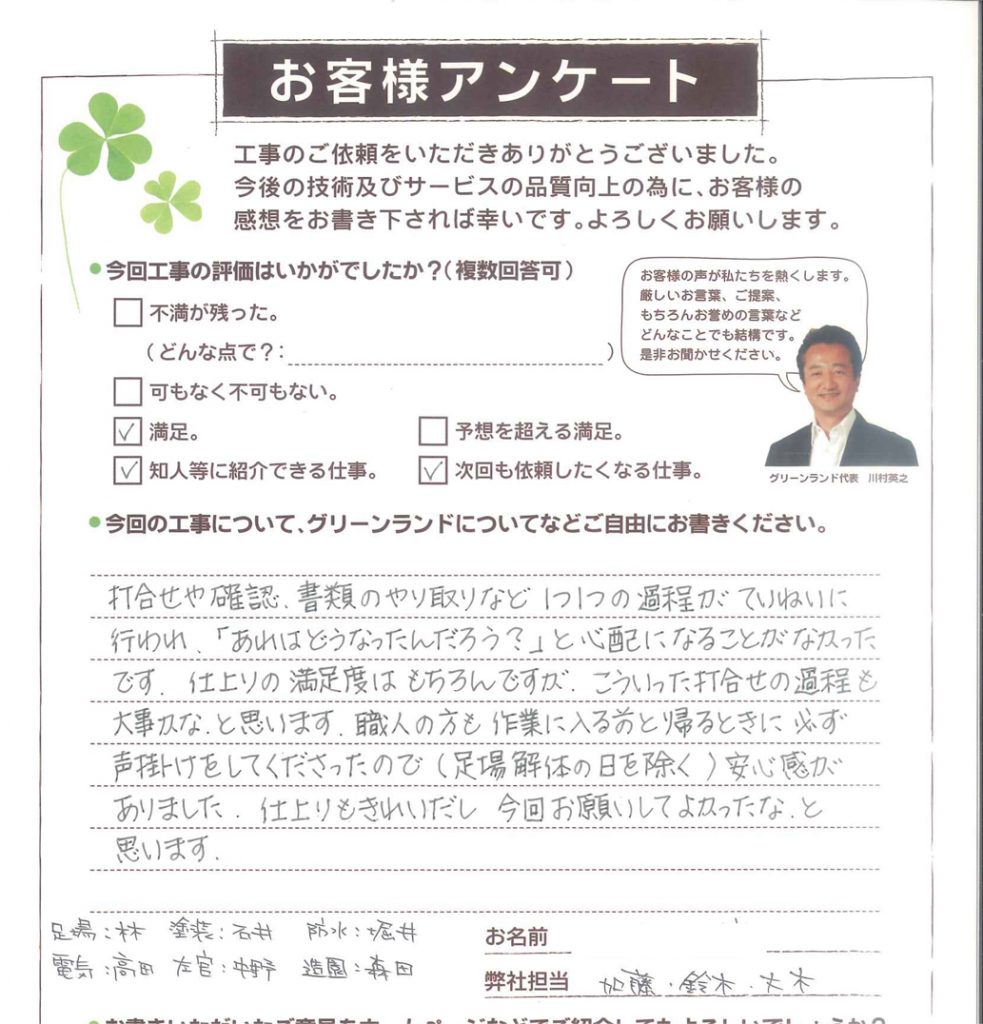 お客様アンケート
工事のご依頼をいただきありがとうございました。
今後の技術及びサービスの品質向上の為に、お客様の
感想をお書き下されば幸いです。よろしくお願いします。
●今回工事の評価はいかがでしたか?(複数回答可)
お客様の声が私たちを熱くします。
厳しいお言葉、ご提案、
もちろんお誉めの言葉など
どんなことでも結構です。
是非お聞かせください。
□ 不満が残った。
(どんな点で?: )
□ 可もなく不可もない。
☑ 満足。 □ 予想を超える満足。
☑ 知人等に紹介できる仕事。 ☑ 次回も依頼したくなる仕事。
グリーンランド代表 川村英之
●今回の工事について、グリーンランドについてなどご自由にお書きください。
打合せや確認、書類のやり取りなど 1つ1つの過程がていねいに
行われ、「あれはどうなったんだろう?」と心配になることがなかった
です. 仕上りの満足度はもちろんですが. こういった打合せの過程も
大事かな.と思います. 職人の方も 作業に入る前と帰るときに 必ず
声掛けをしてくださったので(足場解体の日を除く)安心感が
ありました. 仕上りもきれいだし 今回お願いしてよかったな.と
思います.
足場:林 塗装:石井 防水:堀井
電気:高田 左官:中野 造園:森田
お名前
弊社担当 加藤・鈴木・大木
●お書きいただいたご意見をホームページなどでご紹介してもよろしいでしょうか?